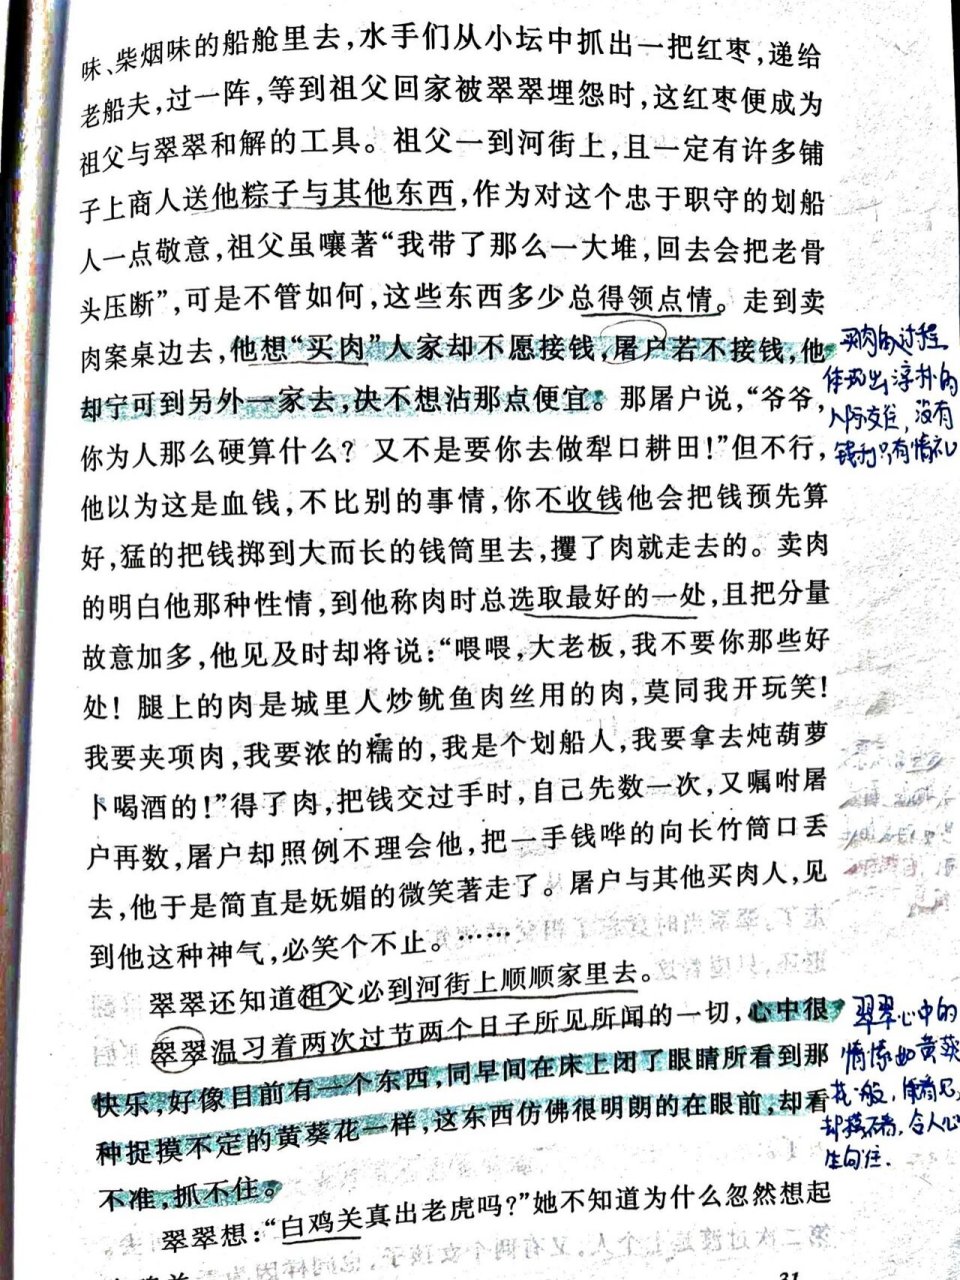 味、柴烟味的船舱里去，水手们从小坛中抓出一把红枣，递给
老船夫，过一阵，等到祖父回家被翠翠埋怨时，这红枣便成为
祖父与翠翠和解的工具。祖父一到河街上，且一定有许多铺
子上商人送他粽子与其他东西，作为对这个忠于职守的划船
人一点敬意，祖父虽嚷著“我带了那么一大堆，回去会把老骨
头压断”，可是不管如何，这些东西多少总得领点情。走到卖
肉案桌边去，他想“买肉”人家却不愿接钱，屠户若不接钱，他
却宁可到另外一家去，决不想沾那点便宜。那屠户说，“爷爷，
你为人那么硬算什么？又不是要你去做犁口耕田！”但不行，
他以为这是血钱，不比别的事情，你不收钱他会把钱预先算
好，猛的把钱掷到大而长的钱筒里去，攫了肉就走去的。卖肉
的明白他那种性情，到他称肉时总选取最好的一处，且把分量
故意加多，他见及时却将说：“喂喂，大老板，我不要你那些好
处！腿上的肉是城里人炒鱿鱼肉丝用的肉，莫同我开玩笑！
我要夹项肉，我要浓的糯的，我是个划船人，我要拿去炖葫萝
卜喝酒的！”得了肉，把钱交过手时，自己先数一次，又嘱咐屠
户再数，屠户却照例不理会他，把一手钱哗的向长竹筒口丢
去，他于是简直是妩媚的微笑著走了。屠户与其他买肉人，见
到他这种神气，必笑个不止。……
翠翠还知道祖父必到河街上顺顺家里去。
翠翠温习着两次过节两个日子所见所闻的一切，心中很
快乐，好像目前有一个东西，同早间在床上闭了眼睛所看到那
种捉摸不定的黄葵花一样，这东西仿佛很明朗的在眼前，却看
不准，抓不住。
翠翠想：“白鸡关真出老虎吗？”她不知道为什么忽然想起
31
买肉的过程
体现出淳朴的
人际交往，没有
钱利只有情礼
翠翠心中的
情愫如黄葵
花一般，
令人心
生向往.